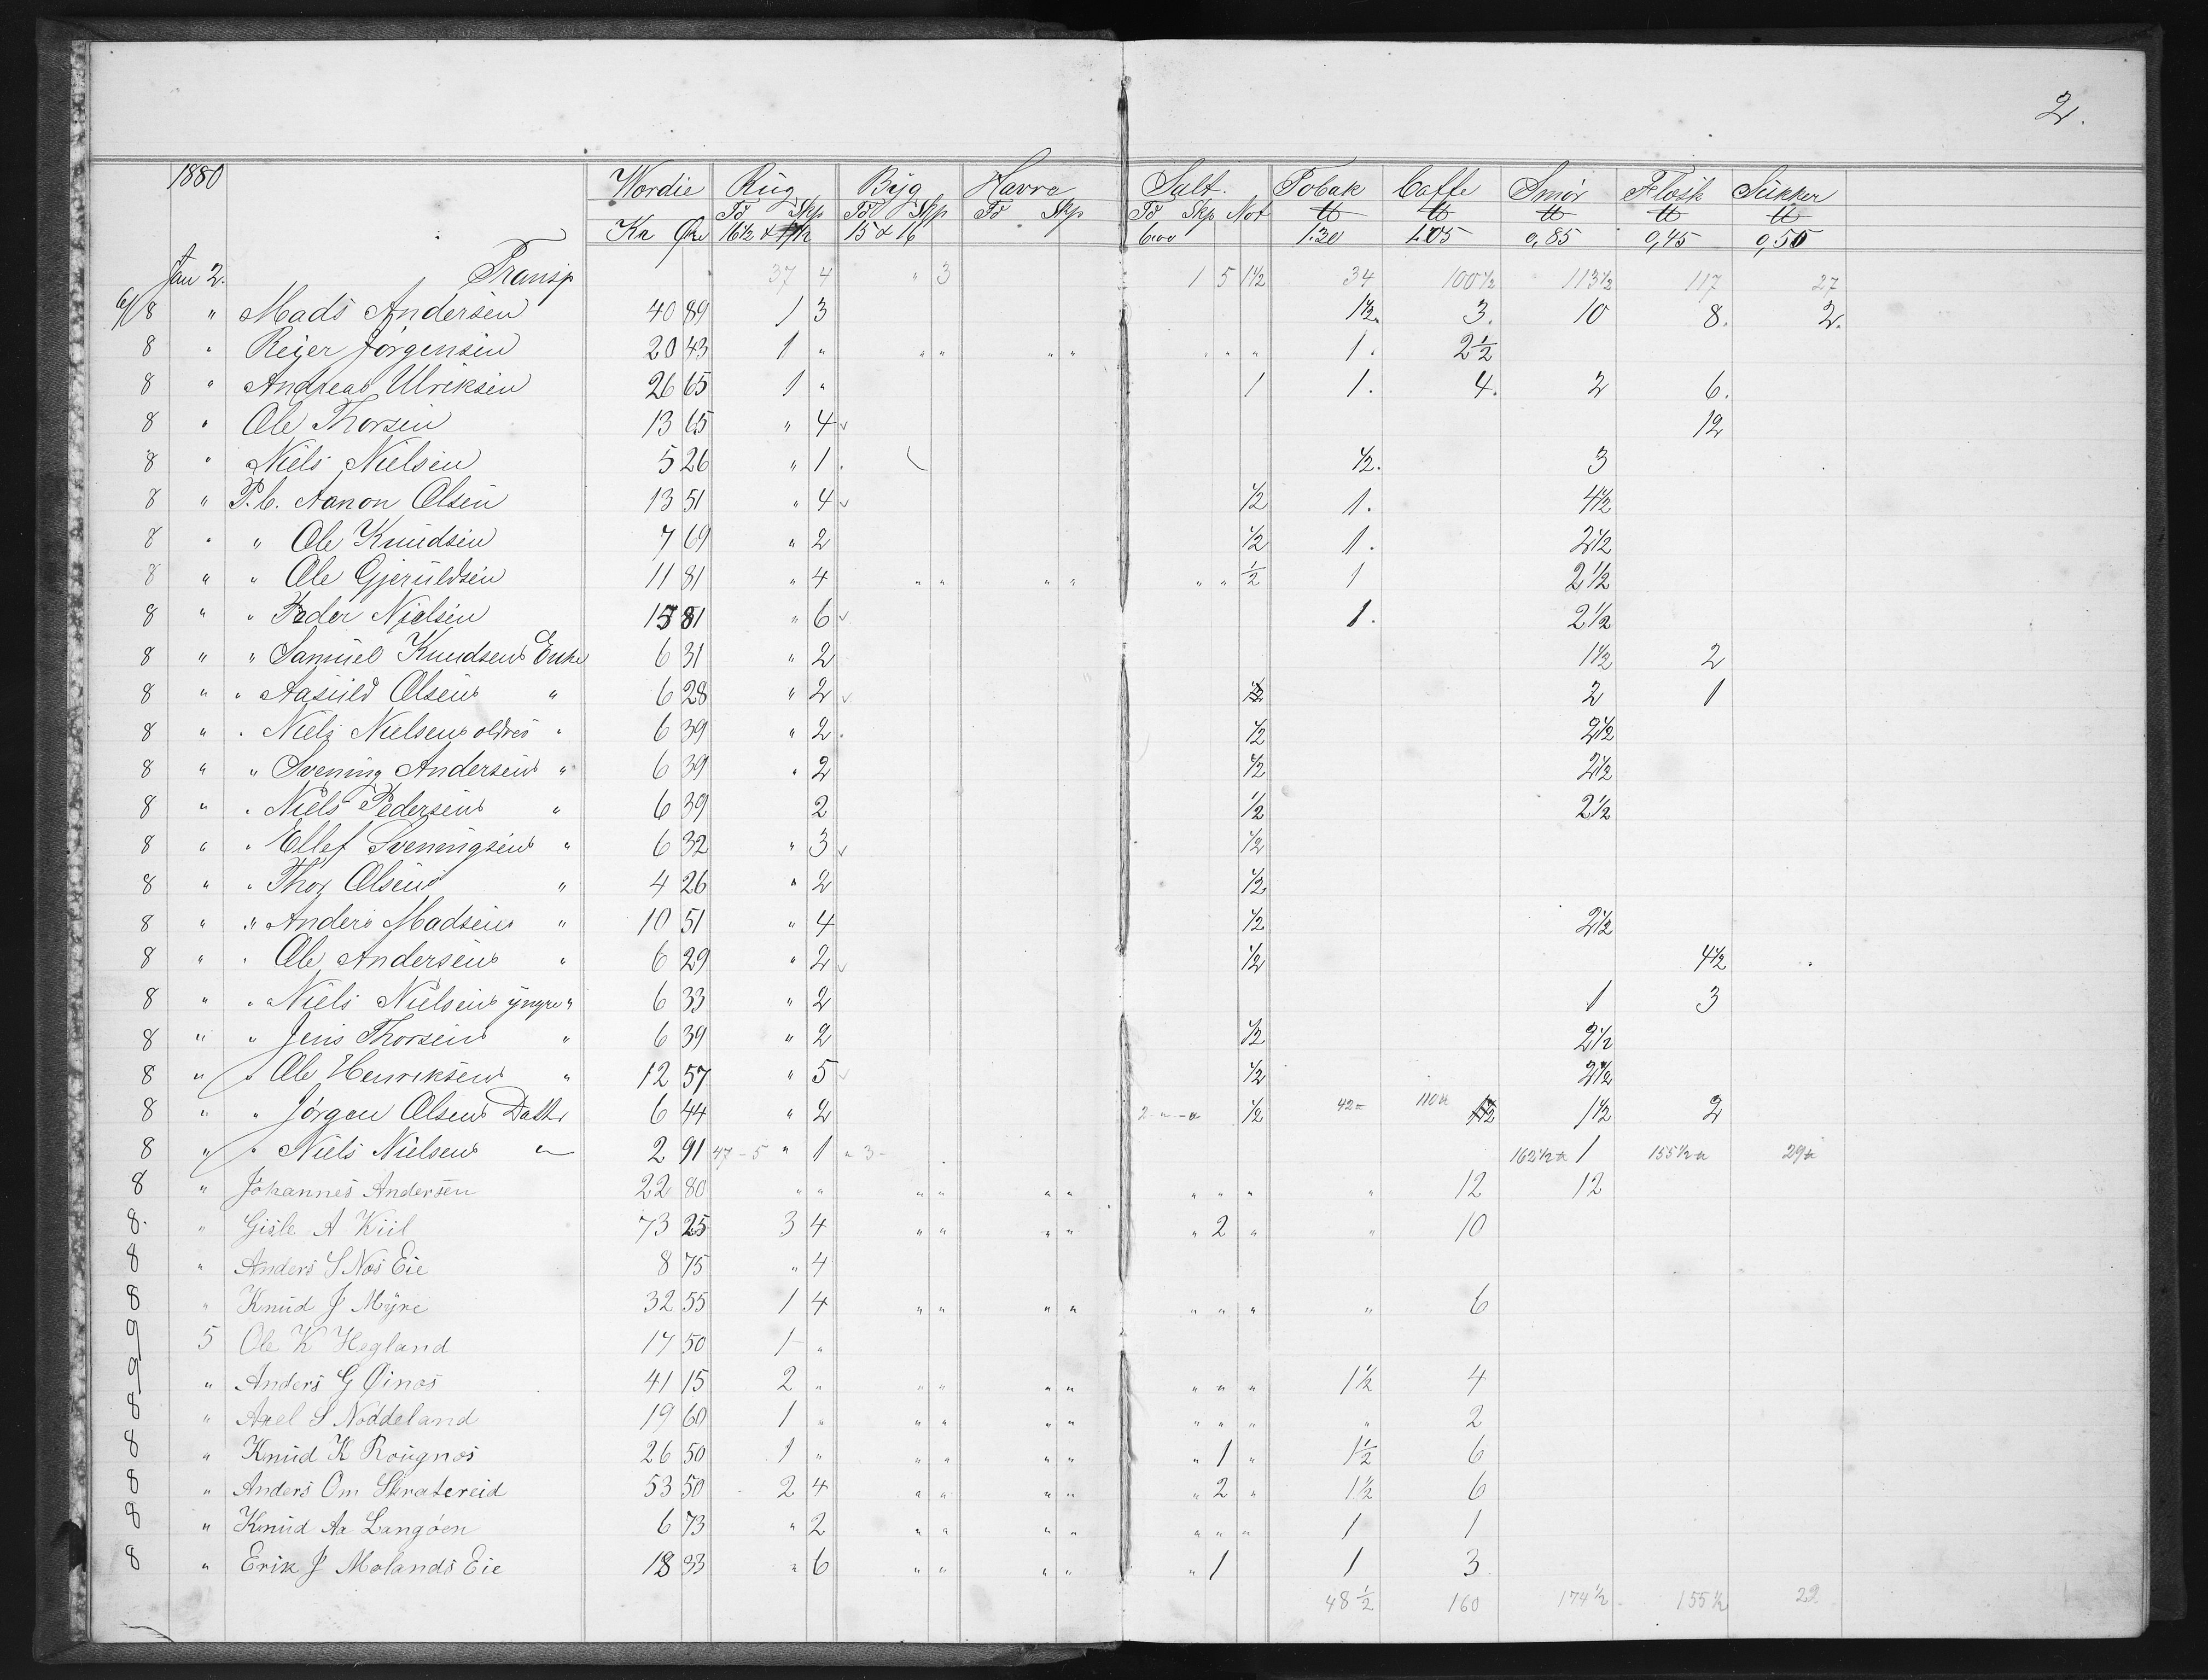 2.
1880 Wordie Rug Byg Havre Salt. Tobak Caffe Smör Flæsk Sukker
Tø Skp Tø Skp Tø Skp Tø Skp Not ℔ ℔ ℔ ℔ ℔
Kr Øre 16½ & 15 & 16 6.00 1.30 1.05 0,85 0,45 0,50
Jan 2. Transp 37 4 " 3 1 5 1½ 34 100½ 113½ 117 27
8 " Mads Andersen 40 89 1 3 1½. 3. 10 8. 2.
8 " Reijer Jörgensen 20 43 1 " " " " " " " " 1. 2½
8 " Andreas Ulriksen 26 65 1 " 1 1. 4. 2 6.
8 " Ole Thorsen 13 65 " 4 12
8 " Niels Nielsen 5 26 " 1. ½. 3
8 " P.C. Aanon Olsen 13 51 " 4 ½ 1. 4½
8 " " Ole Knudsen 7 69 " 2 ½ 1. 2½
8 " " Ole Gjeruldsen 11 81 " 4 " " " " " " ½ 1 2½
8 " " Peder Nielsen 15 81 " 6 1. 2½
8 " " Samuel Knudsens Enke 6 31 " 2 1½ 2
8 " " Aasuld Olsens " 6 28 " 2 ½ 2 1
8 " " Niels Nielsens oldres " 6 39 " 2. ½ 2½
8 " " Svening Andersens " 6 39 " 2 ½ 2½
8 " " Niels Pedersens " 6 39 2 ½ 2½
8 " " Ellef Sveningsens " 6 32 " 3 ½
8 " " Thor Olsens " 4 26 " 2 ½
8 " " Anders Madsens " 10 51 " 4 ½ 2½
8 " " Ole Andersens " 6 29 " 2 ½ 4½
8 " " Niels Nielsens yngre " 6 33 " 2 1 3
8 " " Jens Thorsens " 6 39 " 2 ½ 2½
8 " " Ole Henriksens " 12 57 " 5 ½ 2½
8 " " Jörgen Olsens Datter 6 44 " 2 2-"-" ½ 42" 110" 1½ 1½ 2
8 " " Niels Nielsens " 2 91 47-5 " 1 "3- 162½" 1 155½" 29"
8 " Johannes Andersen 22 80 " " " " " " " " " " 12 12
8. " Gisle A Kiil 73 25 3 4 " " " " " 2 " " 10
8 " Anders S Næs Eie 8 75 " 4
8 " Knud J Myre 32 55 1 4 " " " " " " " " 6
9 5 Ole K Hegland 17 50 1 "
9 " Anders G Øinæs 41 15 2 " " " " " " " " 1½ 4
8 " Axel S Nöddeland 19 60 1 " " " " " " " " " 2
8 " Knud K Rougnæs 26 50 1 " " " " " " 1 " 1½ 6
8 " Anders Om Skratereid 53 50 2 4 " " " " " 2 " 1½ 6
8 " Knud Aa Langöen 6 73 " 2 " " " " " " " 1 1
8 " Erik J Molands Eie 18 33 " 6 " " " " " 1 1 3
48½ 160 174½ 155½ 29